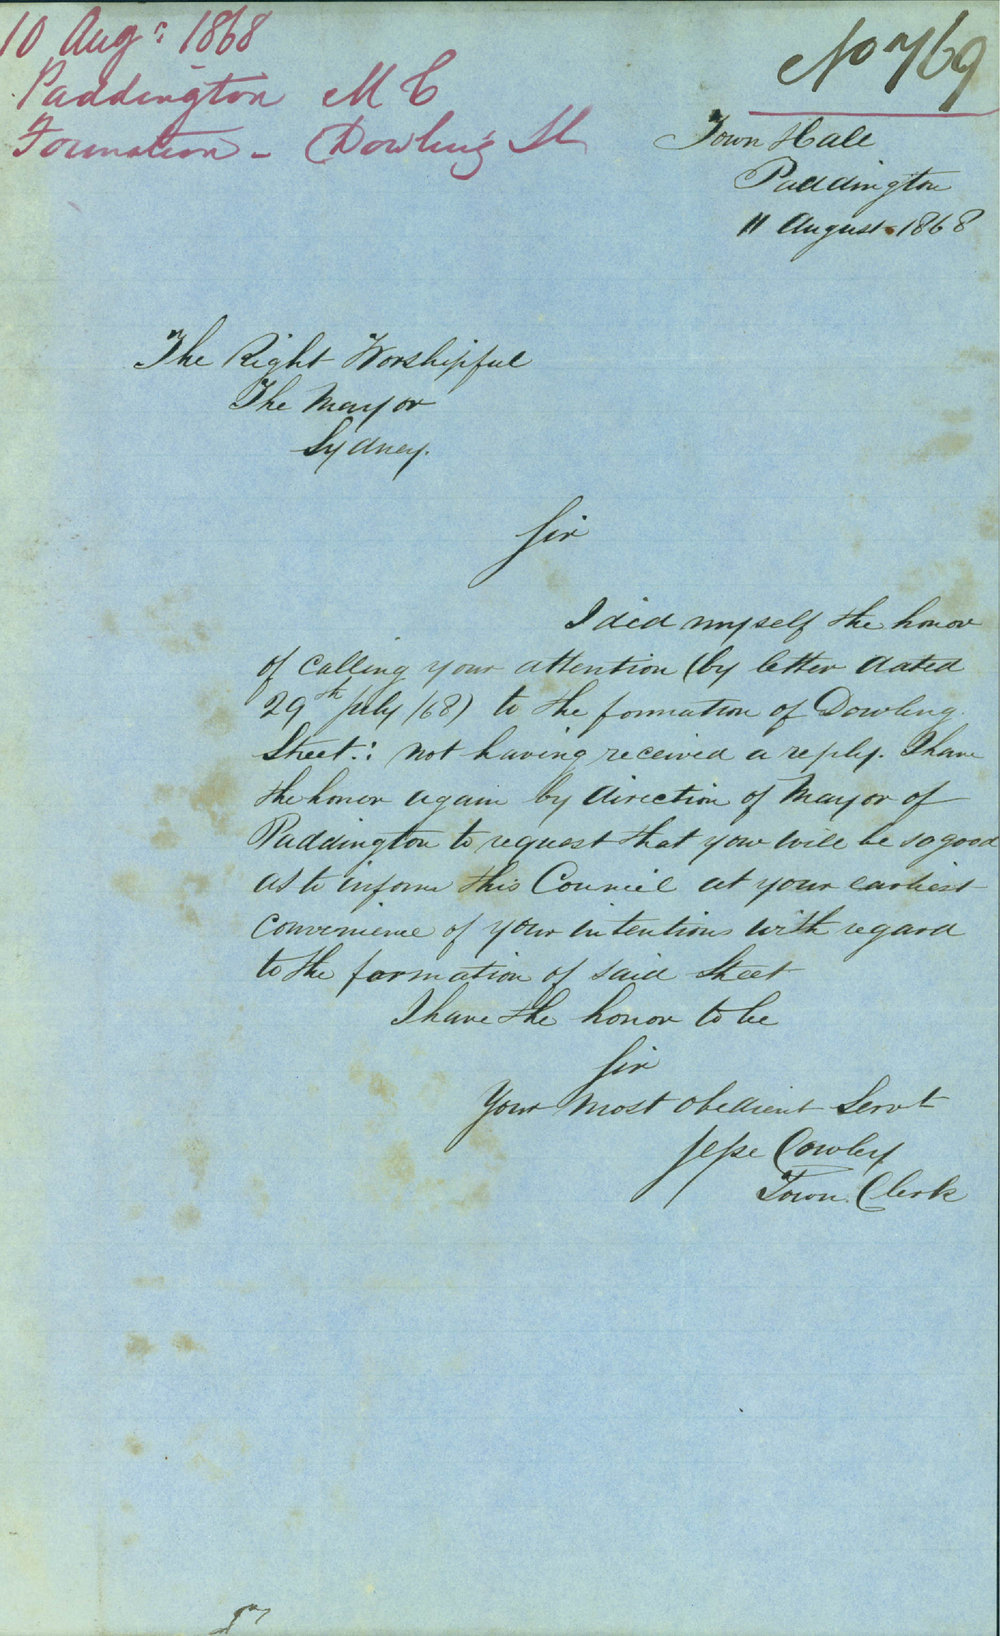 10 Aug: 1868
Paddington M C
Formation - Dowling St
No 769
Town Hall
Paddington
11 August 1868
The Right Worshipful
The Mayor
Sydney.
Sir
I did myself the honor
of calling your attention (by letter dated
29th July /68) to the formation of Dowling
Street: not having received a reply. I have
the honor again by direction of Mayor of
Paddington to request that you will be so good
as to inform this Council at your earliest
convenience of your intentions with regard
to the formation of said Street
I have the honor to be
Sir
Your most obedient Servt
Jesse Cowley
Town Clerk